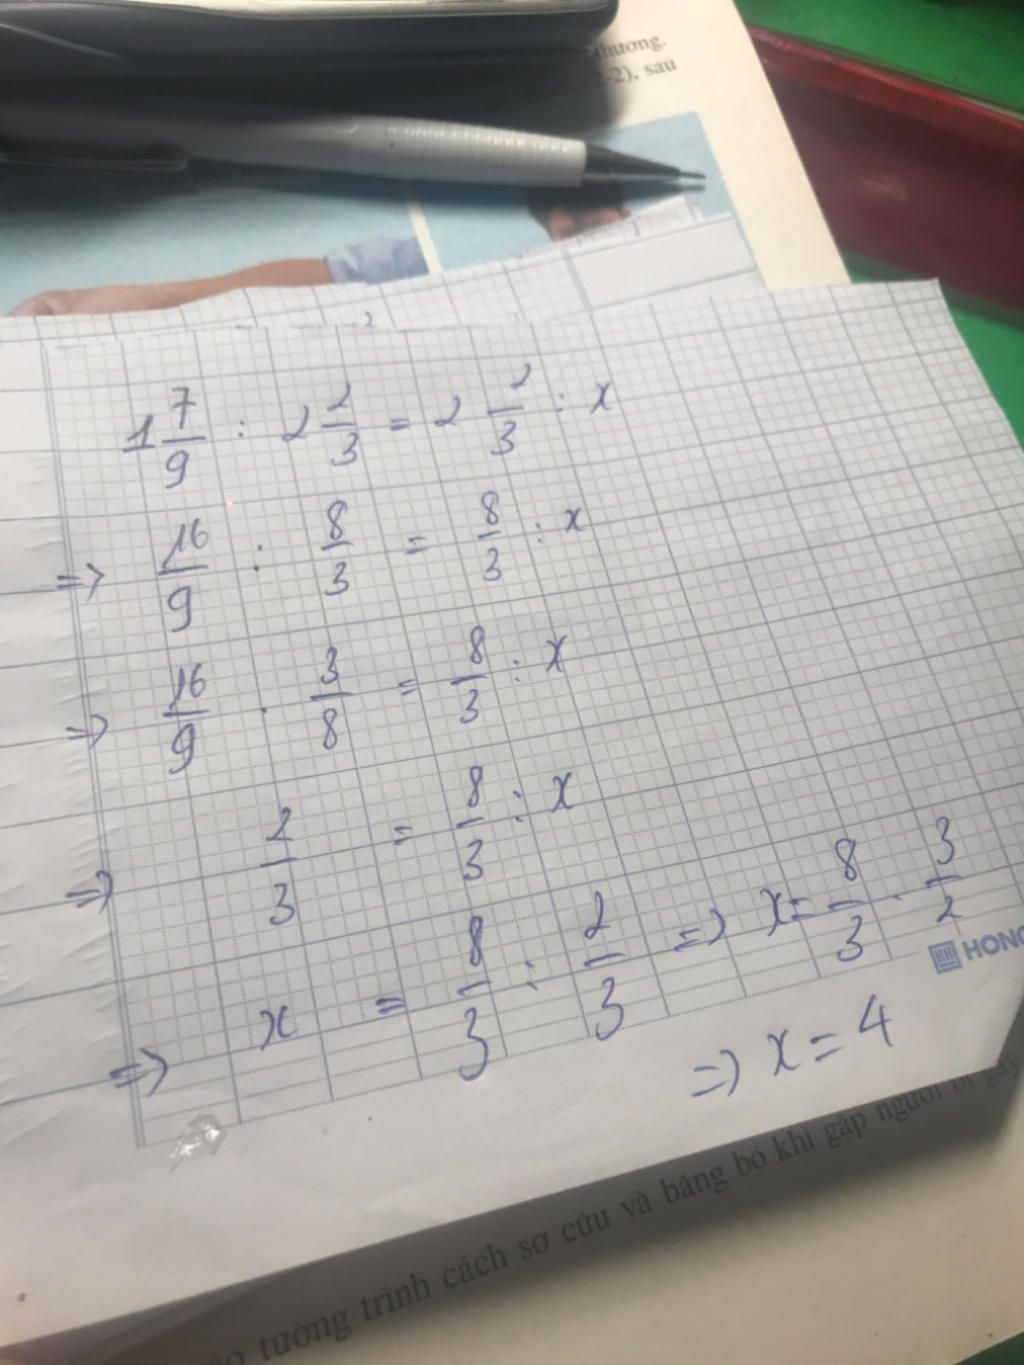 thương.
2-2), sau
1 7/9 : 2 2/3 = 2 2/3 : x
=> 16/9 : 8/3 = 8/3 : x
=> 16/9 . 3/8 = 8/3 : x
=> 2/3 = 8/3 : x
=> x = 8/3 : 2/3 => x = 8/3 . 3/2
HONG
=> x = 4
tường trình cách sơ cứu và băng bó khi gặp người bị gãy